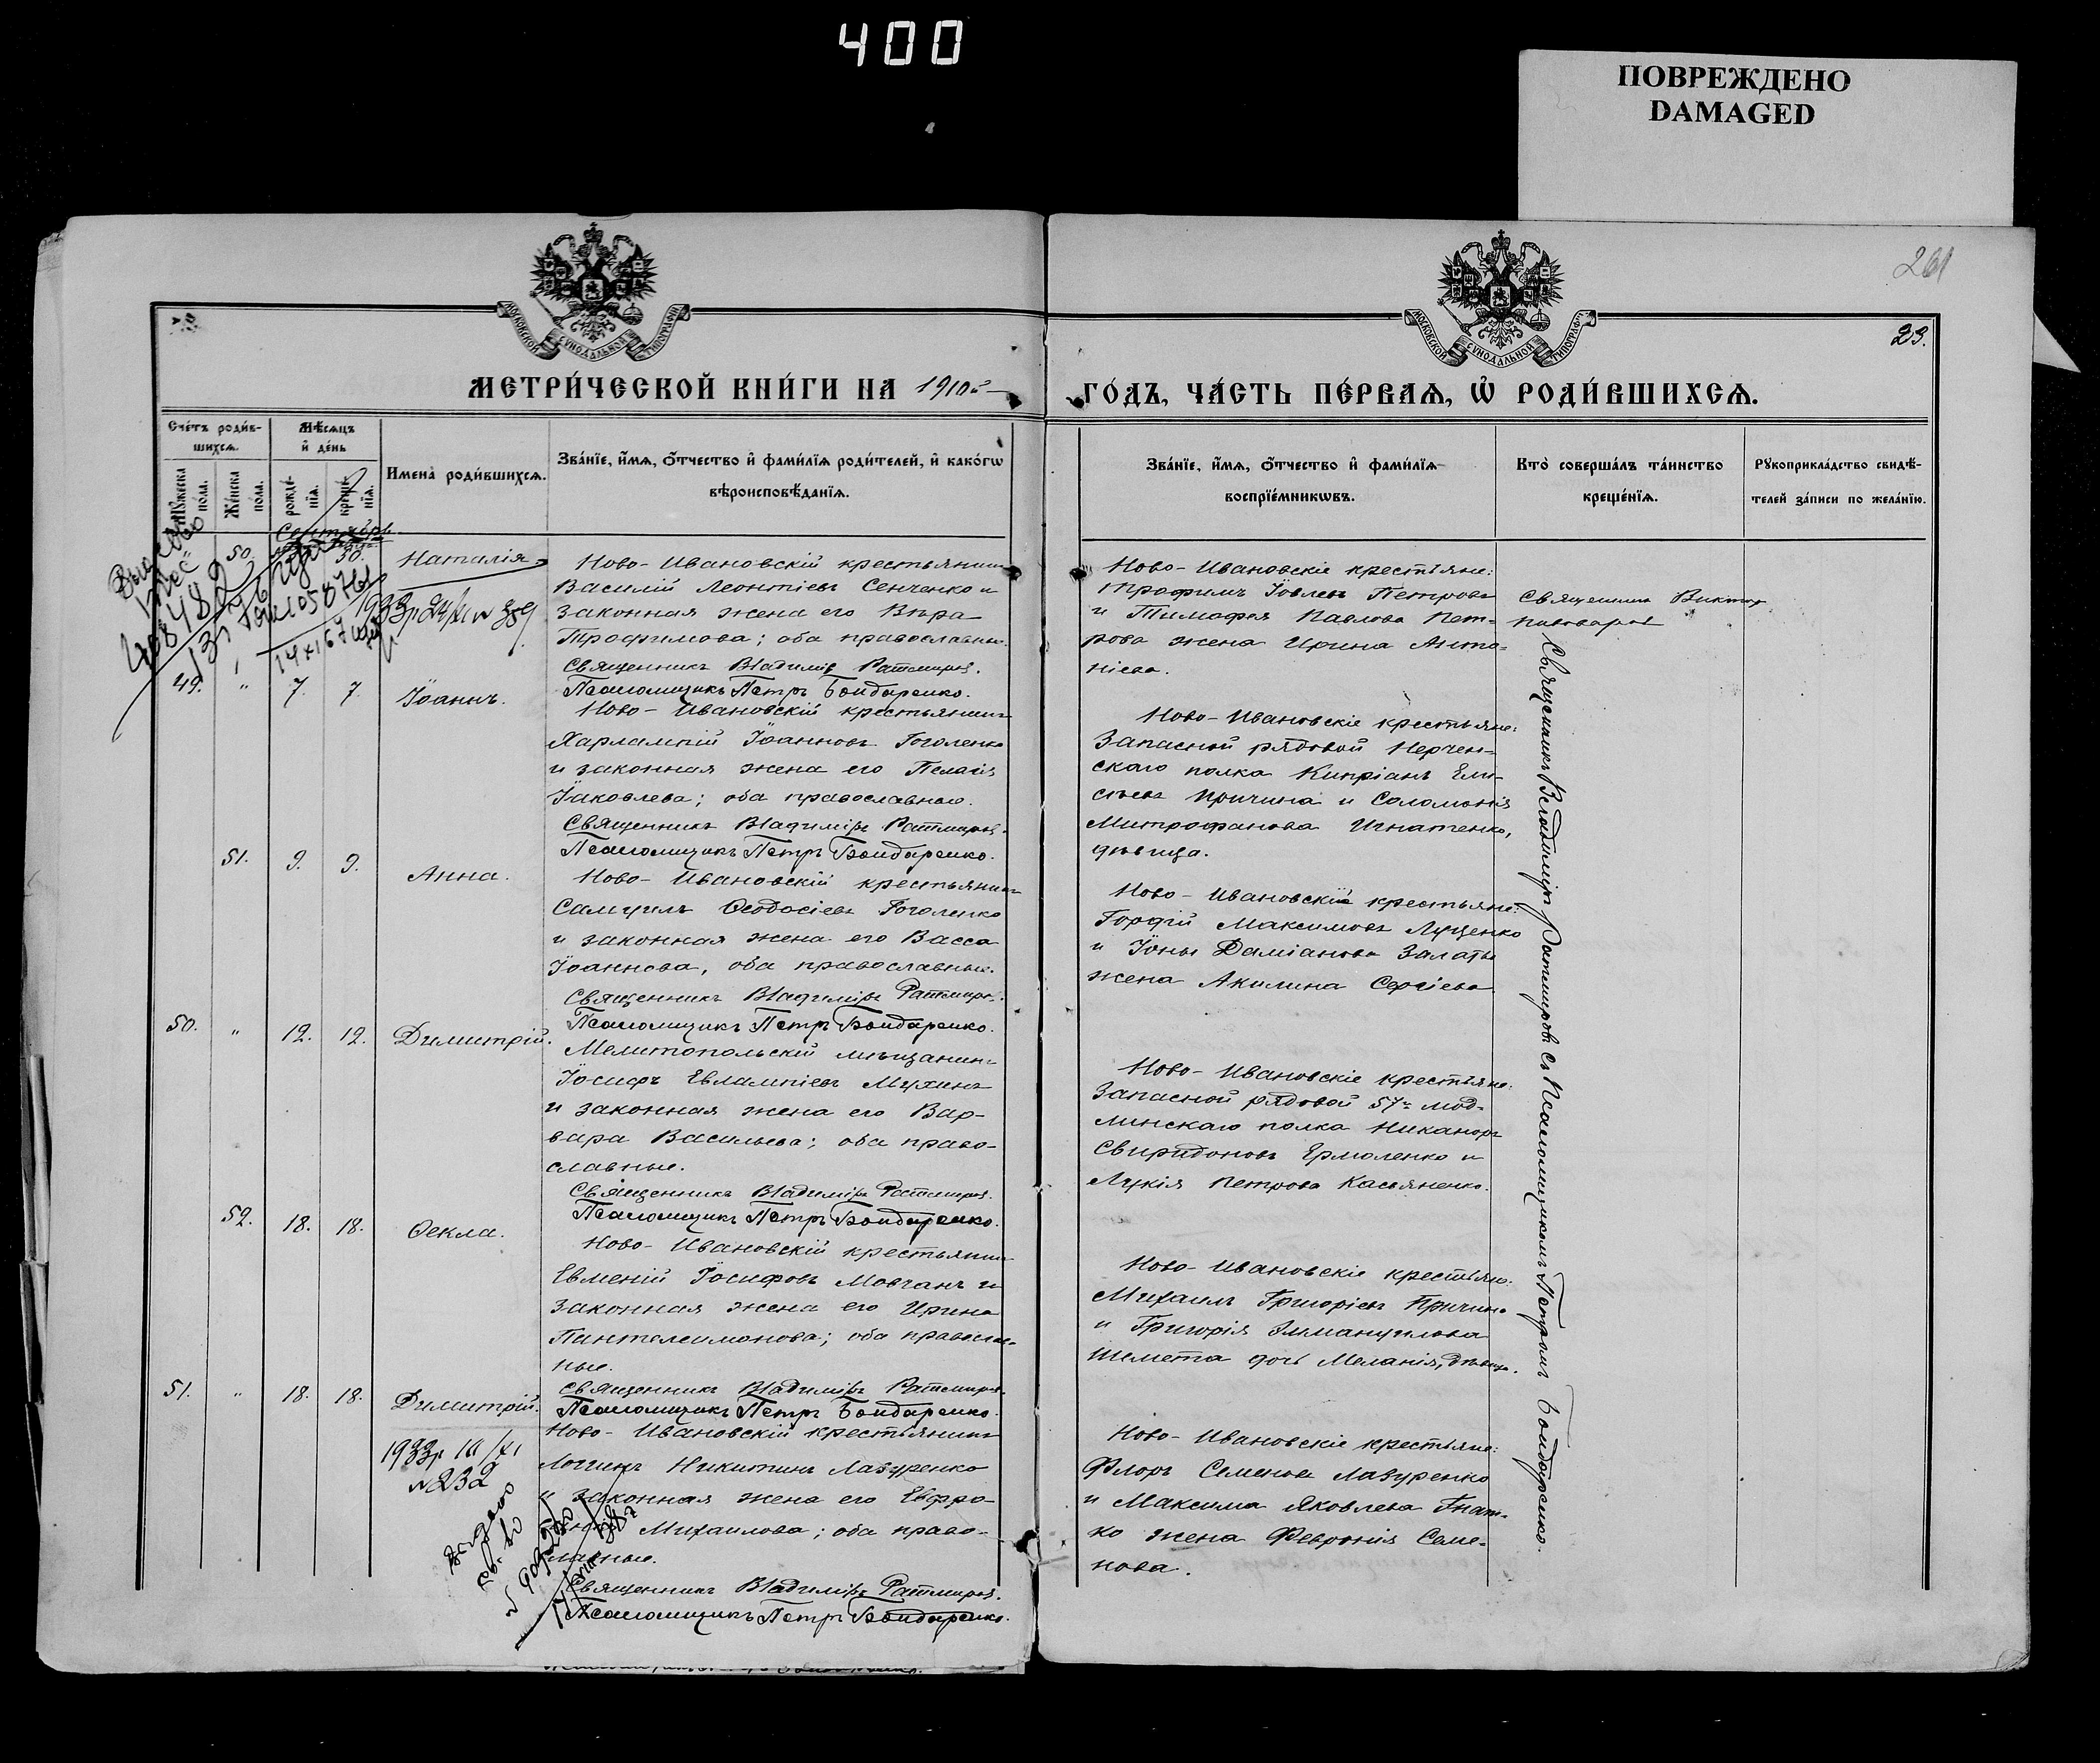 400
ПОВРЕЖДЕНО
DAMAGED
261
23.
МОСКОВСКОЙ СѴНОДАЛЬНОЙ ТИПОГРАФІИ
МОСКОВСКОЙ СѴНОДАЛЬНОЙ ТИПОГРАФІИ
МЕТРИ́ЧЕСКОЙ КНИ́ГИ НА 1910й
ГО́ДЪ, ЧА́СТЬ ПЕ́РВАѦ, Ѡ҆ РОДИ́ВШИХСѦ.
Сче́тъ роди́в-
шихсѧ.
Мѣ́сѧцъ
и҆ де́нь
Мꙋ́жеска по́ла.
Же́нска по́ла.
рожде́-нїѧ.
креще́-нїѧ.
Имена̀ роди́вшихсѧ.
Зва́нїе, и҆́мѧ, ѻ҆́тчество и҆ фами́лїѧ роди́телей, и҆ како́гѡ
вѣроисповѣ́данїѧ.
Зва́нїе, и҆́мѧ, ѻ҆́тчество и҆ фами́лїѧ
воспрїе́мникѡвъ.
Кто̀ соверша́лъ та́инство
креще́нїѧ.
Рꙋкоприкла́дство свидѣ́-
телей за́писи по жела́нїю.
Сентябрь
50.
30.
Наталія
Ново-Ивановскій крестьянинъ
Василій Леонтіевъ Сенченко и
законная жена его Вѣра
Трофимова; оба православные.
Священникъ Владиміръ Ратмировъ.
Псаломщикъ Петръ Бондаренко.
Ново-Ивановскіе крестьяне:
Трофимъ Іовлевъ Петровъ
и Тимофея Павлова Пет-
рова жена Ирина Анто-
ніева.
Священникъ Виктор
Пивоваров
49.
"
7.
7.
Іоаннъ.
Ново-Ивановскій крестьянинъ
Харлампій Іоанновъ Гоголенко
и законная жена его Пелагія
Іаковлева; оба православные.
Священникъ Владиміръ Ратмировъ.
Псаломщикъ Петръ Бондаренко.
Ново-Ивановскіе крестьяне:
Запасной рядовой Нерчен-
скаго полка Кипріанъ Ели-
сѣевъ Причина и Соломонія
Митрофанова Игнатенко,
дѣвица.
51.
9.
9.
Анна.
Ново-Ивановскій крестьянинъ
Самуилъ Ѳеодосіевъ Гоголенко
и законная жена его Васса
Іоаннова, оба православные.
Священникъ Владиміръ Ратмировъ.
Псаломщикъ Петръ Бондаренко.
Ново-Ивановскіе крестьяне:
Гордій Максимовъ Луценко
и Іоны Даміанова Залаты
жена Акилина Сергіева.
50.
"
12.
12.
Димитрій.
Мелитопольскій мѣщанинъ
Іосифъ Евлампіевъ Мухинъ
и законная жена его Вар-
вара Васильева; оба право-
славные.
Священникъ Владиміръ Ратмировъ.
Псаломщикъ Петръ Бондаренко.
Ново-Ивановскіе крестьяне:
Запасной рядовой 57го Мод-
линскаго полка Никаноръ
Свиридоновъ Ермоленко и
Лукія Петрова Касьяненко.
52.
18.
18.
Ѳекла.
Ново-Ивановскій крестьянинъ
Евменій Іосифовъ Мовчанъ и
законная жена его Ирина
Пантелеимонова; оба православ-
ные.
Священникъ Владиміръ Ратмировъ.
Псаломщикъ Петръ Бондаренко.
Ново-Ивановскіе крестьяне:
Михаилъ Григоріевъ Причина
и Григорія Эммануилова
Шемета дочь Меланія, дѣвица.
51.
"
18.
18.
Димитрій.
1933г 10/XI
№232
Ново-Ивановскій крестьянинъ
Логгинъ Никитинъ Лазуренко
и законная жена его Евфро-
Михаилова; оба право-
славные.
Священникъ Владиміръ Ратмировъ.
Псаломщикъ Петръ Бондаренко.
Ново-Ивановскіе крестьяне:
Флоръ Семеновъ Лазуренко
и Максима Яковлева Гнат-
ко жена Феврония Семе-
нова.
Священникъ Владиміръ Ратмировъ съ Псаломщикомъ Петромъ Бондаренко.